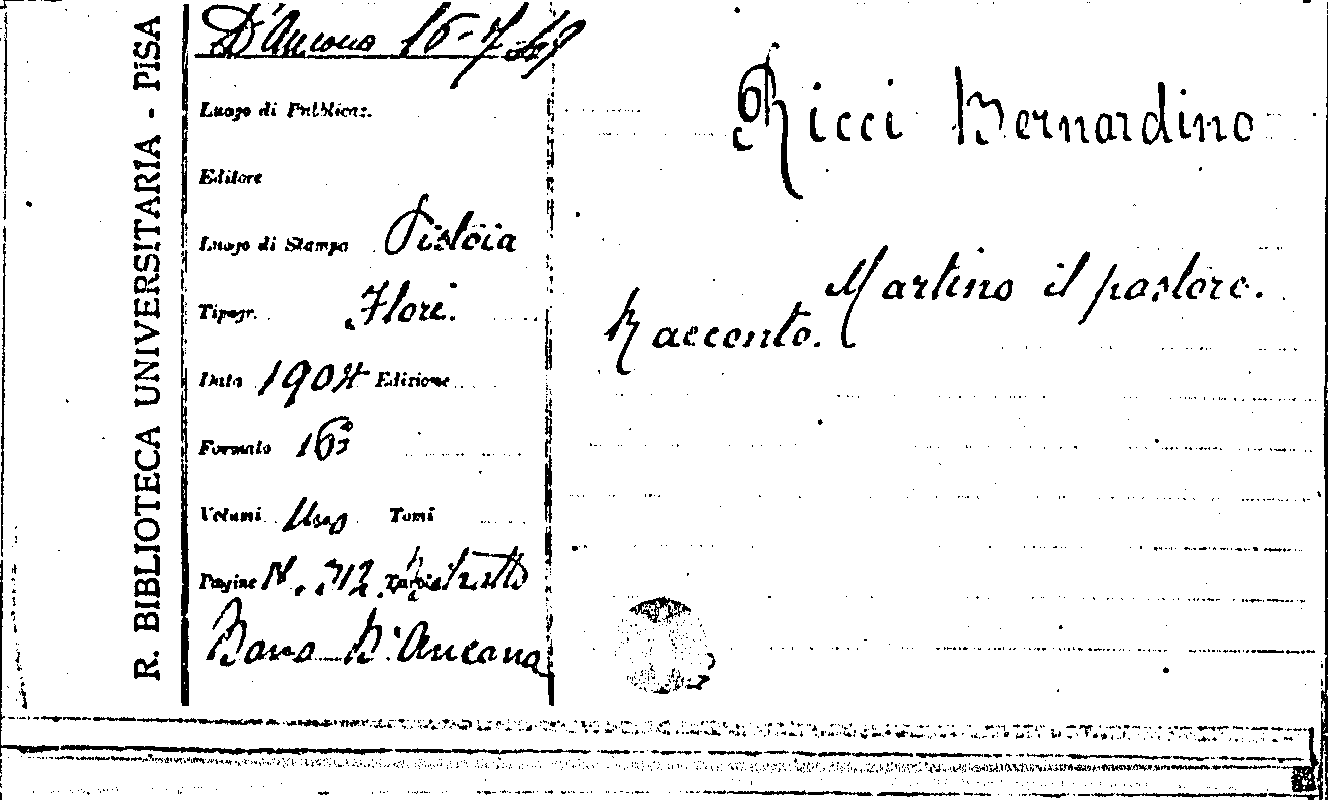 R. BIBLIOTECA UNIVERSITARIA - PISA
D'Ancona 16-7
Luogo di Pubblicaz.
Editore
Luogo di Stampa Pistoia
Tipogr. Flori.
Data 1904 Edizione
Formato 16º
Volumi Uno Tomi
Pagine N. 312.
Dono D'Ancona
Ricci Bernardino
Martino il pastore.
Racconto.